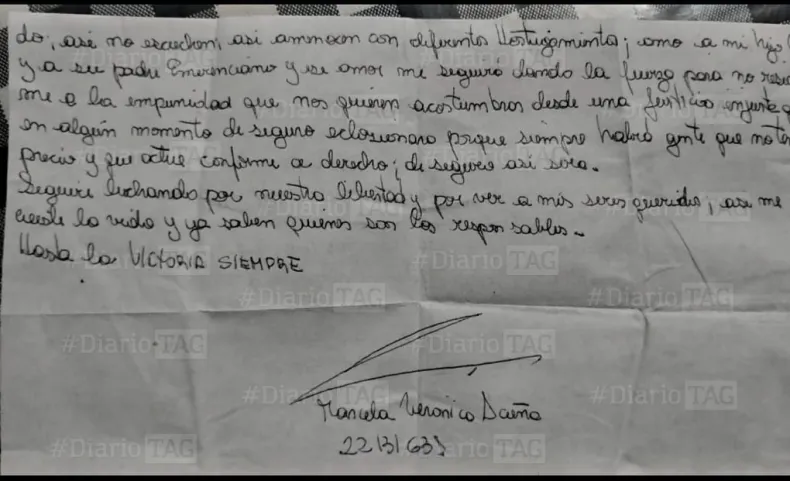 do, así no escuchen, así amenacen con diferentes Hostigamientos; como a mi hijo
y a su padre Emerenciano y ese amor me seguirá dando la fuerza para no resig
me a la impunidad que nos quieren acostumbrar desde una justicia injusta q
en algún momento de seguro eclosionara porque siempre habrá gente que no ten
precio y que actue conforme a derecho; de seguro así sera.
Seguiré luchando por nuestra libertad y por ver a mis seres queridos, asi me
cueste la vida y ya saben quienes son los responsables.
Hasta la VICTORIA SIEMPRE
Marcela Veronica
#DiarioTAG
#DiarioTAG
#DiarioTAG
#DiarioTAG
#DiarioTAG
#DiarioTAG
#DiarioTAG
#DiarioTAG